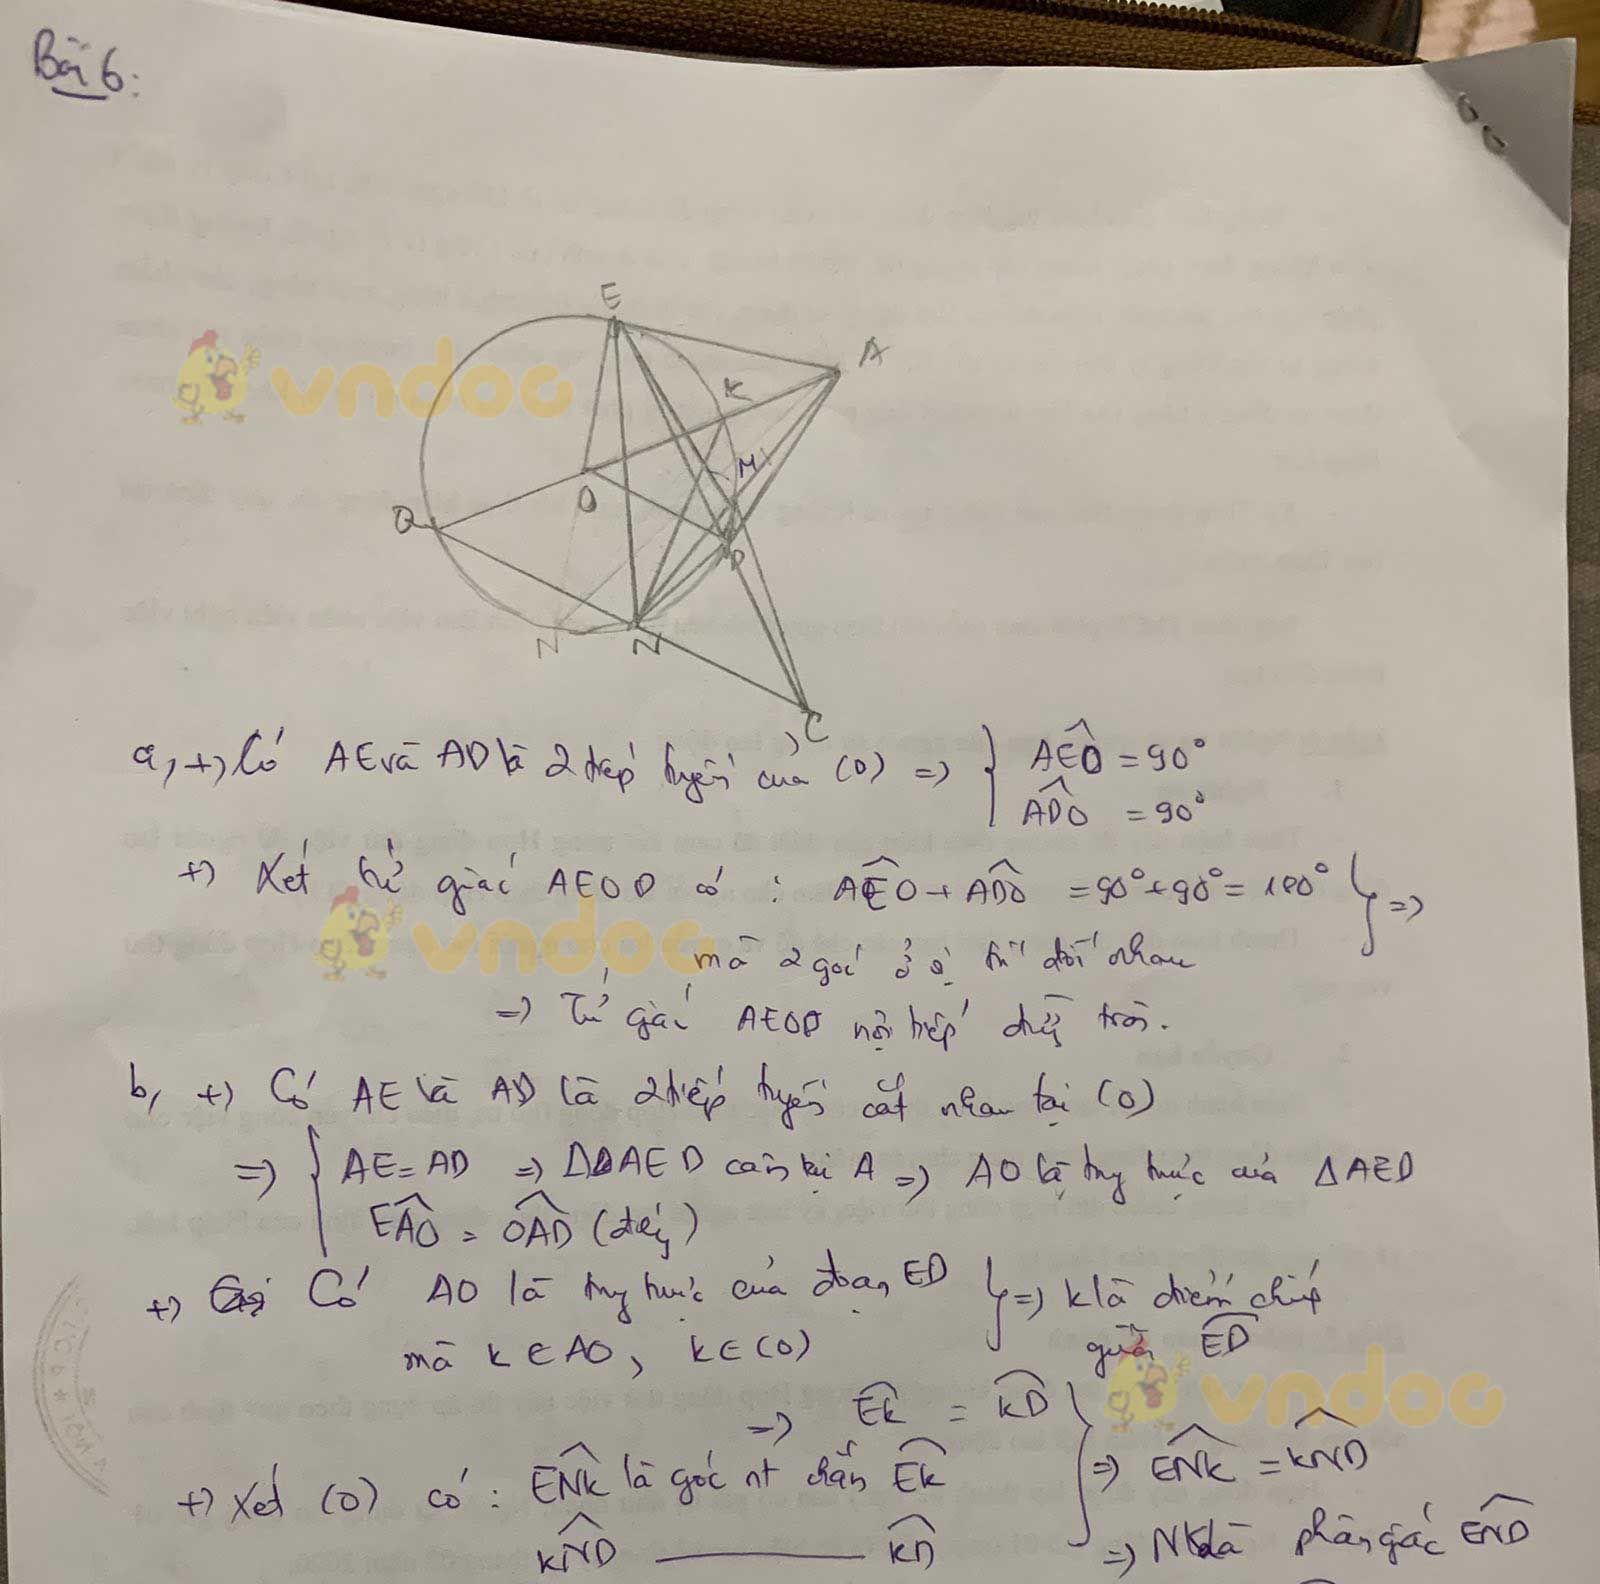 Bài 6:
E
A
K
M
O
Q
P
N
N
C
vndoc
a, +, Có AE và AD là 2 tiếp tuyến của (O) => { AEO = 90°
ADO = 90°
+) Xét tứ giác AEOD có : AEO + ADO = 90° + 90° = 180° } =>
vndoc
mà 2 góc ở vị trí đối nhau
=> Tứ giác AEOD nội tiếp đường tròn.
b, +) Có AE và AD là 2 tiếp tuyến cắt nhau tại (O)
=> { AE = AD => ΔAED cân tại A => AO là trung trực của ΔAED
EAO = OAD (đ/lý)
+) Có AO là trung trực của đoạn ED } => K là điểm chính
mà K ∈ AO, K ∈ (O) giữa ED
vndoc
=> EK = KD }
+) Xét (O) có : ENK là góc nt chắn EK => ENK = KND
KND ——— KD => NK là phân giác END